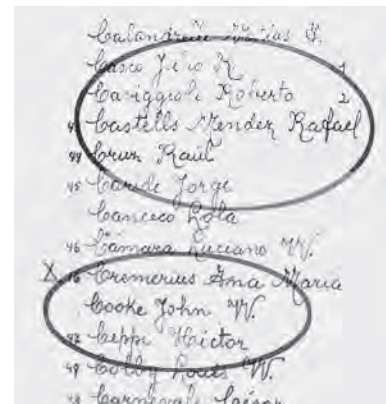 Calandrelli Matias S.
Casco Julio R. 1
Caviggioli Roberto 2
Castells Mendez Rafael
44 Cruz Raúl
45 Caride Jorge
Canceco Lola
46 Cámara Luciano W.
X 46 Cremerius Ana Maria
Cooke John W.
47 Ceppi Héctor
49 Colby Louis W.
Carnevale César